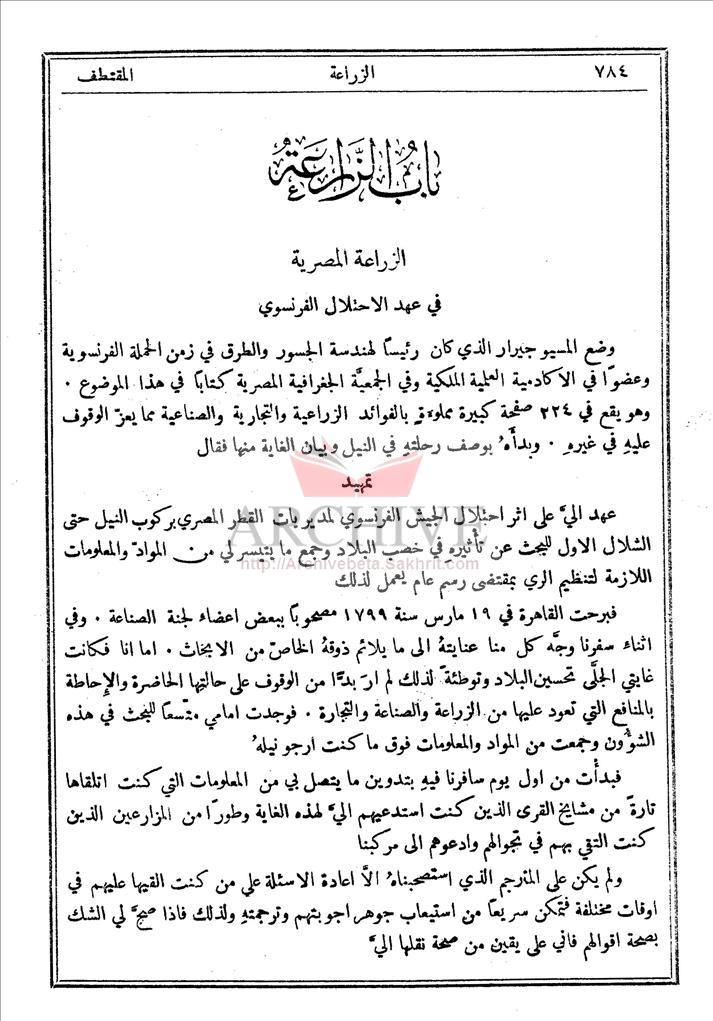 ٧٨٤ الزراعة المقتطف
باب الزراعة
الزراعة المصرية
في عهد الاحتلال الفرنسوي
وضع المسيو جيرار الذي كان رئيسًا لهندسة الجسور والطرق في زمن الحملة الفرنسوية
وعضوًا في الاكادمية العلمية الملكية وفي الجمعيَّة الجغرافية المصرية كتابًا في هذا الموضوع ٠
وهو يقع في ٢٢٤ صفحة كبيرة مملوءةٍ بالفوائد الزراعية والتجارية والصناعية مما يعزّ الوقوف
عليهِ في غيرهِ ٠ وبدأَهُ بوصف رحلتهِ في النيل وبيان الغاية منها فقال
تمهيد
عهد اليَّ على اثر احتلال الجيش الفرنسوي لمديريات القطر المصري بركوب النيل حتى
الشلال الاول للبحث عن تأثيره في خصب البلاد وجمع ما يتيسر لي من المواد والمعلومات
اللازمة لتنظيم الري بمقتضى رسم عام يعمل لذلك
فبرحت القاهرة في ١٩ مارس سنة ١٧٩٩ مصحوبًا ببعض اعضاء لجنة الصناعة ٠ وفي
اثناء سفرنا وجَّه كل منا عنايتهُ الى ما يلائم ذوقهُ الخاصّ من الابحاث ٠ اما انا فكانت
غايتي الجلَّى تحسين البلاد وتوطئةً لذلك لم ارَ بدًّا من الوقوف على حالتها الحاضرة والإحاطة
بالمنافع التي تعود عليها من الزراعة والصناعة والتجارة ٠ فوجدت امامي متّسعًا للبحث في هذه
الشؤُون وجمعت من المواد والمعلومات فوق ما كنت ارجو نيلهُ
فبدأْت من اول يوم سافرنا فيهِ بتدوين ما يتصل بي من المعلومات التي كنت اتلقاها
تارةً من مشايخ القرى الذين كنت استدعيهم اليَّ لهذه الغاية وطورًا من المزارعين الذين
كنت التقي بهم في تجوالهم وادعوهم الى مركبنا
ولم يكن على المترجم الذي استصحبناهُ الَّا اعادة الاسئلة علي من كنت القيها عليهم في
اوقات مختلفة فتمكن سريعًا من استيعاب جوهر اجوبتهم وترجمتهِ ولذلك فاذا صحَّ لي الشك
بصحة اقوالهم فاني على يقين من صحة نقلها اليَّ
ARCHIVE
http://Archivebeta.Sakhrit.com